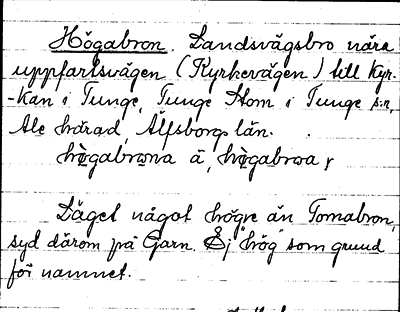 Högabron. Landsvägsbro nära
uppfartsvägen (Kyrkevägen) till Kyr-
-kan i Tunge, Tunge Hom i Tunge sn,
Ale härad, Älfsborgs län.
högabrona ä, högabroa,
Läget något högre än Tomabron,
syd därom på Garn. Ej "hög" som grund
för namnet.